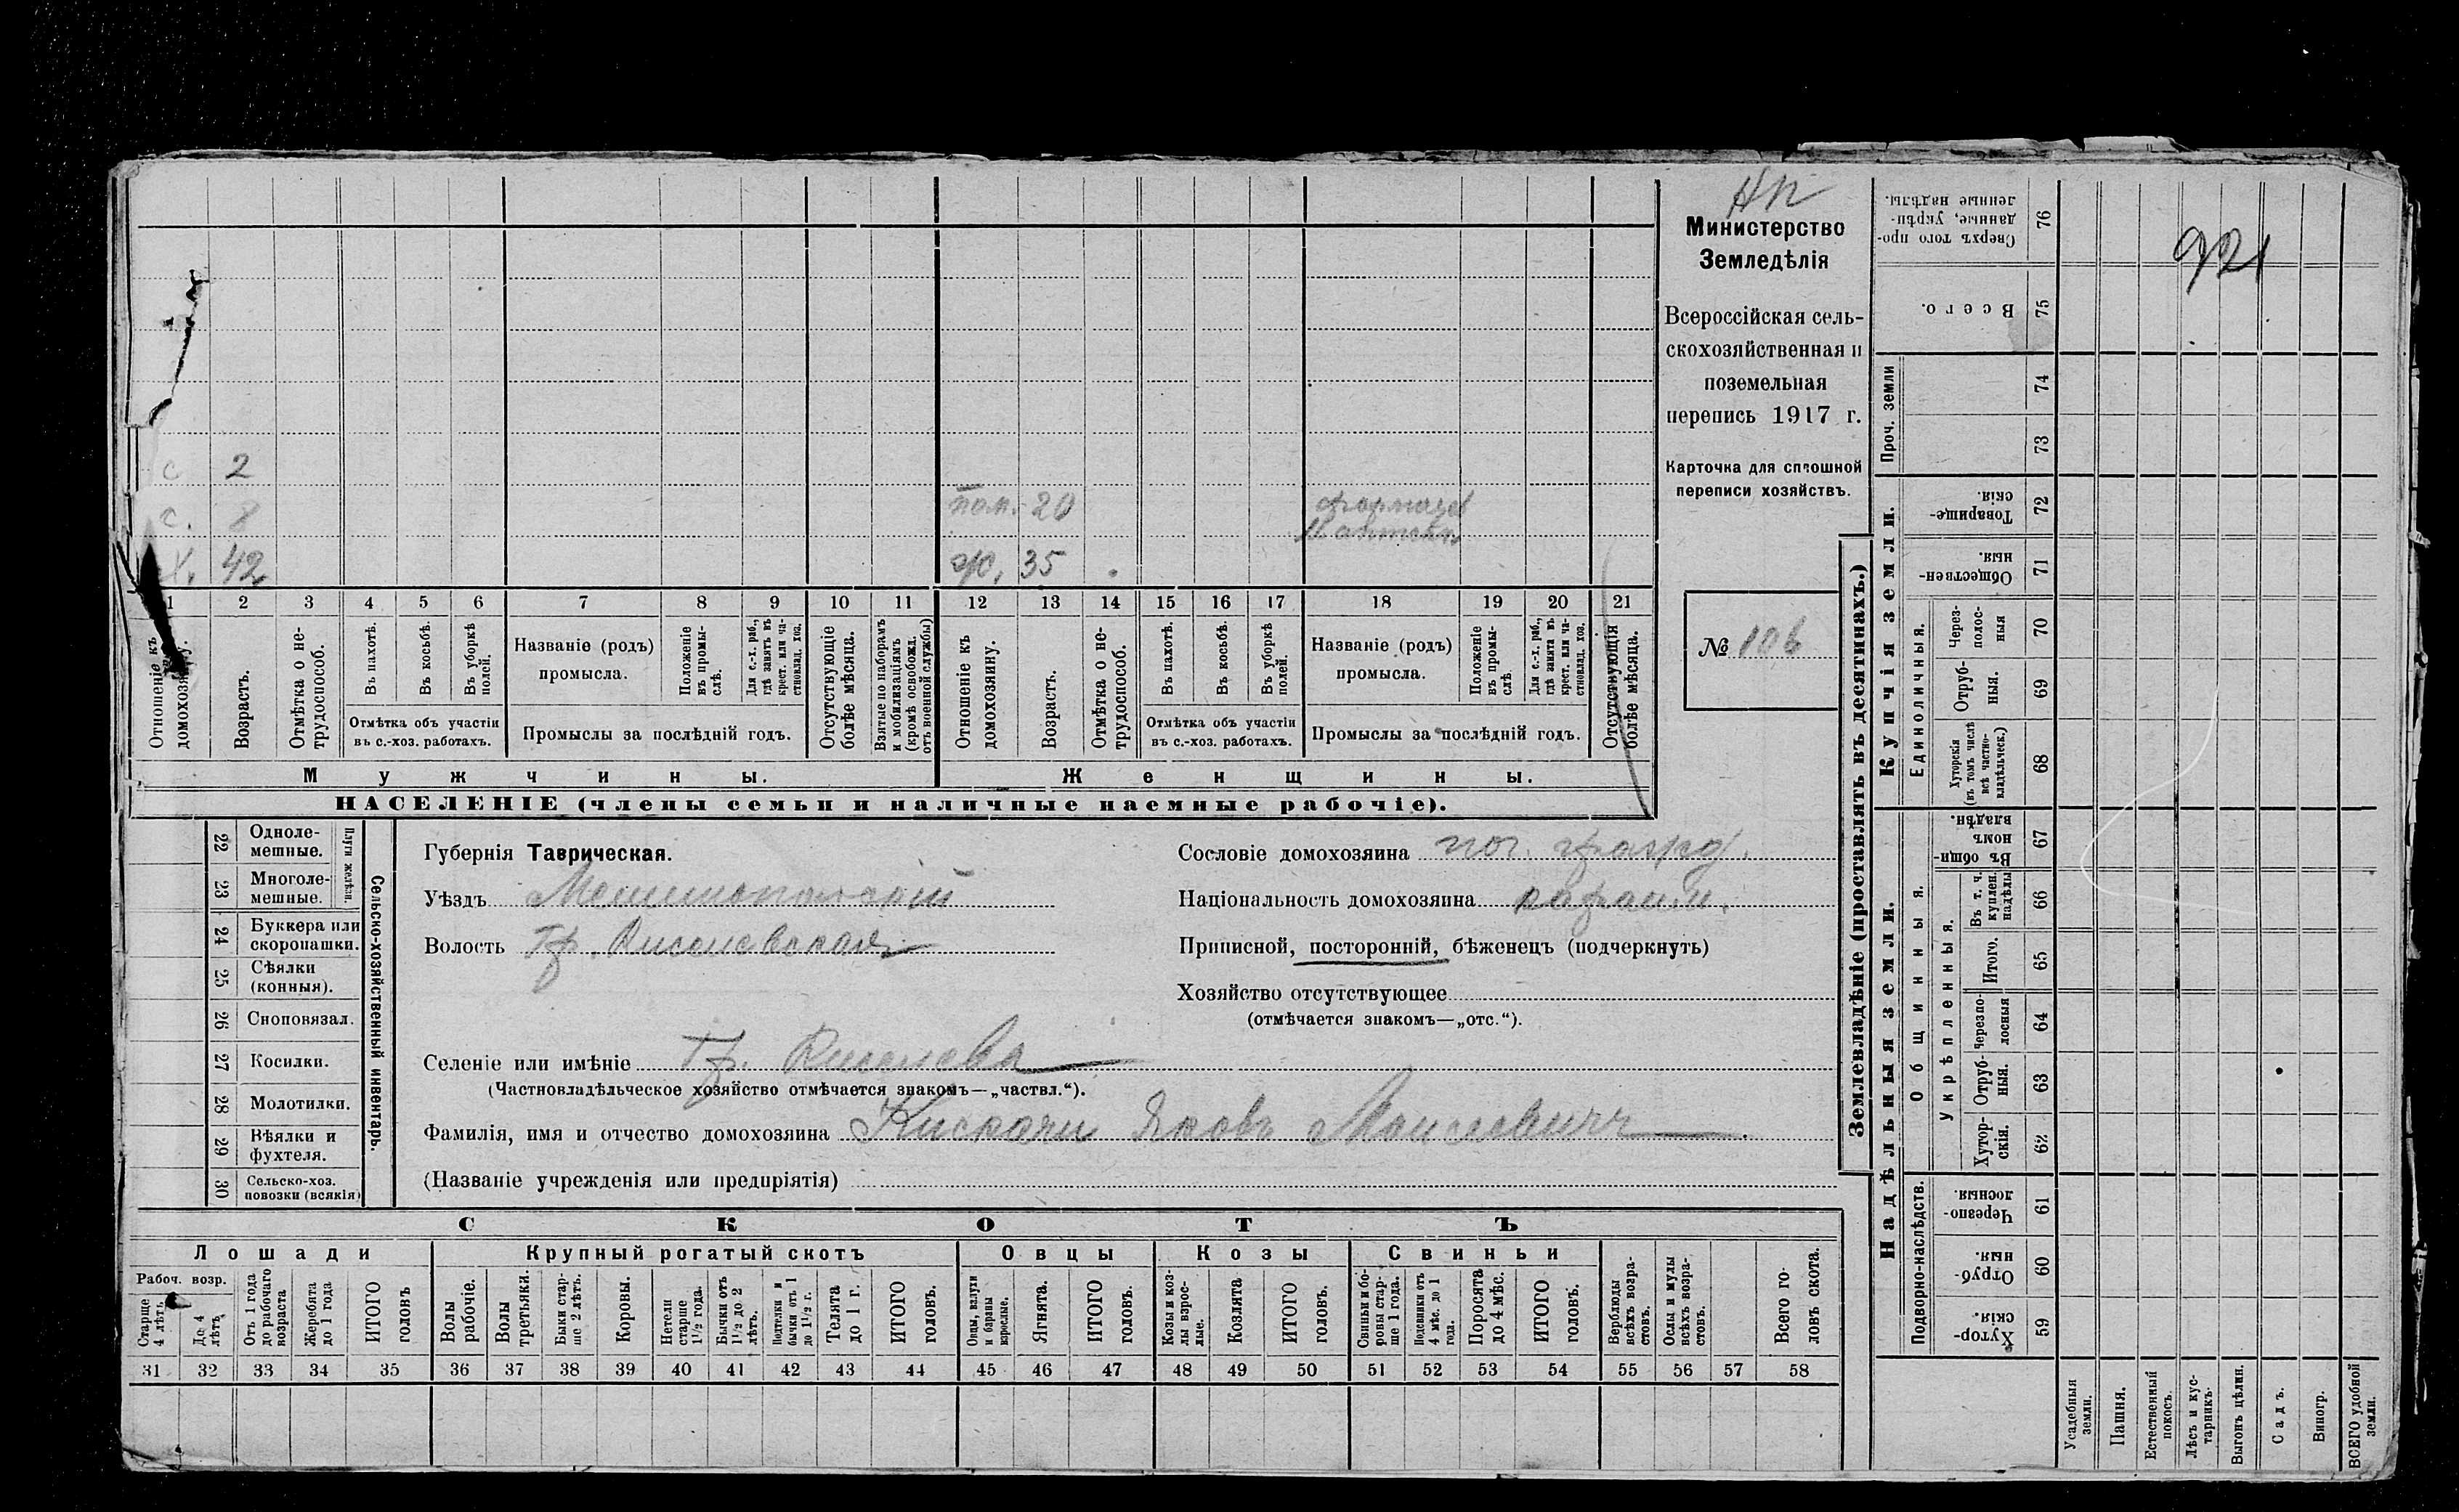 НП
Министерство
Земледѣлія
Всероссійская сель-
скохозяйственная и
поземельная
перепись 1917 г.
Карточка для сплошной
переписи хозяйствъ.
№ 106
921
с 2
с. 8
пом. 20
Х. 42
ж. 35
1 2 3 4 5 6 7 8 9 10 11 12 13 14 15 16 17 18 19 20 21
Отношеніе къ домохозяину.
Возрастъ.
Отмѣтка о не-
трудоспособ.
Въ пахотѣ.
Въ косьбѣ.
Въ уборкѣ
полей.
Отмѣтка объ участіи
въ с.-хоз. работахъ.
Названіе (родъ)
промысла.
Положеніе
въ промы-
слѣ.
Для с.-х. раб.,
гдѣ занятъ въ
крест. или ча-
стновлад. хоз.
Промыслы за послѣдній годъ.
Отсутствующіе
болѣе мѣсяца.
Взятые по наборамъ
и мобилизаціямъ
(кромѣ освобожд.
отъ военной службы)
Отношеніе къ
домохозяину.
Возрастъ.
Отмѣтка о не-
трудоспособ.
Въ пахотѣ.
Въ косьбѣ.
Въ уборкѣ
полей.
Отмѣтка объ участіи
въ с.-хоз. работахъ.
Названіе (родъ)
промысла.
Положеніе
въ промы-
слѣ.
Для с.-х. раб.,
гдѣ занята въ
крест. или ча-
стновлад. хоз.
Промыслы за послѣдній годъ.
Отсутствующія
болѣе мѣсяца.
Мужчины.
Женщины.
НАСЕЛЕНІЕ (члены семьи и наличные наемные рабочіе).
22 Однолемешные.
23 Многолемешные.
Плуги желѣзн.
24 Буккера или
скоропашки.
25 Сѣялки
(конныя).
26 Сноповязал.
27 Косилки.
28 Молотилки.
29 Вѣялки и
фухтеля.
30 Сельско-хоз.
повозки (всякія)
Сельско-хозяйственный инвентарь.
Губернія Таврическая.
Уѣздъ Мелитопольскій
Волость Гр. Киселевская
Сословіе домохозяина пот. гражд.
Національность домохозяина караим.
Приписной, посторонній, бѣженецъ (подчеркнуть)
Хозяйство отсутствующее
(отмѣчается знакомъ—„отс.“).
Селеніе или имѣніе Гр. Киселева
(Частновладѣльческое хозяйство отмѣчается знакомъ—„частвл.“).
Фамилія, имя и отчество домохозяина Кискачи Яковъ Моисеевичъ
(Названіе учрежденія или предпріятія)
СКОТЪ
Лошади
Крупный рогатый скотъ
Овцы
Козы
Свиньи
Рабоч. возр.
Старше
4 лѣтъ
До 4
лѣтъ
Отъ 1 года
до рабочаго
возраста
Жеребята
до 1 года
ИТОГО
головъ
Волы
рабочіе.
Волы
третьяки.
Быки стар-
ше 2 лѣтъ.
Коровы.
Нетели
старше
1½ года.
Бычки отъ
1½ до 2
лѣтъ.
Подтелки и
бычки отъ 1
до 1½ г.
Телята
до 1 г.
ИТОГО
головъ.
Овцы, валухи
и бараны
взрослые.
Ягнята.
ИТОГО
головъ.
Козы и коз-
лы взрос-
лые.
Козлята
ИТОГО
головъ.
Свиньи и бо-
ровы стар-
ше 1 года.
Подсвинки отъ
4 мѣс. до 1
года.
Поросята
до 4 мѣс.
ИТОГО
головъ.
Верблюды
всѣхъ возра-
стовъ.
Ослы и мулы
всѣхъ возра-
стовъ.
Всего го-
ловъ скота.
31 32 33 34 35 36 37 38 39 40 41 42 43 44 45 46 47 48 49 50 51 52 53 54 55 56 57 58
Землевладѣніе (проставлять въ десятинахъ.)
Надѣльныя земли.
Купчія земли.
Проч. земли
Подворно-наслѣдств.
Общинныя.
Укрѣпленныя.
Единоличныя.
Сверхъ того про-
данные, укрѣп-
ленные надѣлы. 76
Всего. 75
74
73
Товарище-
скія. 72
Обществен-
ныя. 71
Через-
полос-
ныя 70
Отруб-
ныя. 69
Хуторскія
(въ томъ числѣ
всѣ частно-
владѣльческ.) 68
Въ общин-
номъ
владѣн. 67
Въ т. ч.
куплен.
надѣлы 66
Итого. 65
Черезпо-
лосныя 64
Отруб-
ныя. 63
Хутор-
скія. 62
Черезпо-
лосныя. 61
Отруб-
ныя. 60
Хутор-
скія. 59
Усадебныя
земли.
Пашня.
Естественный
покосъ.
Лѣсъ и кус-
тарникъ.
Выгонъ цѣлин.
Садъ.
Виногр.
ВСЕГО удобной
земли.